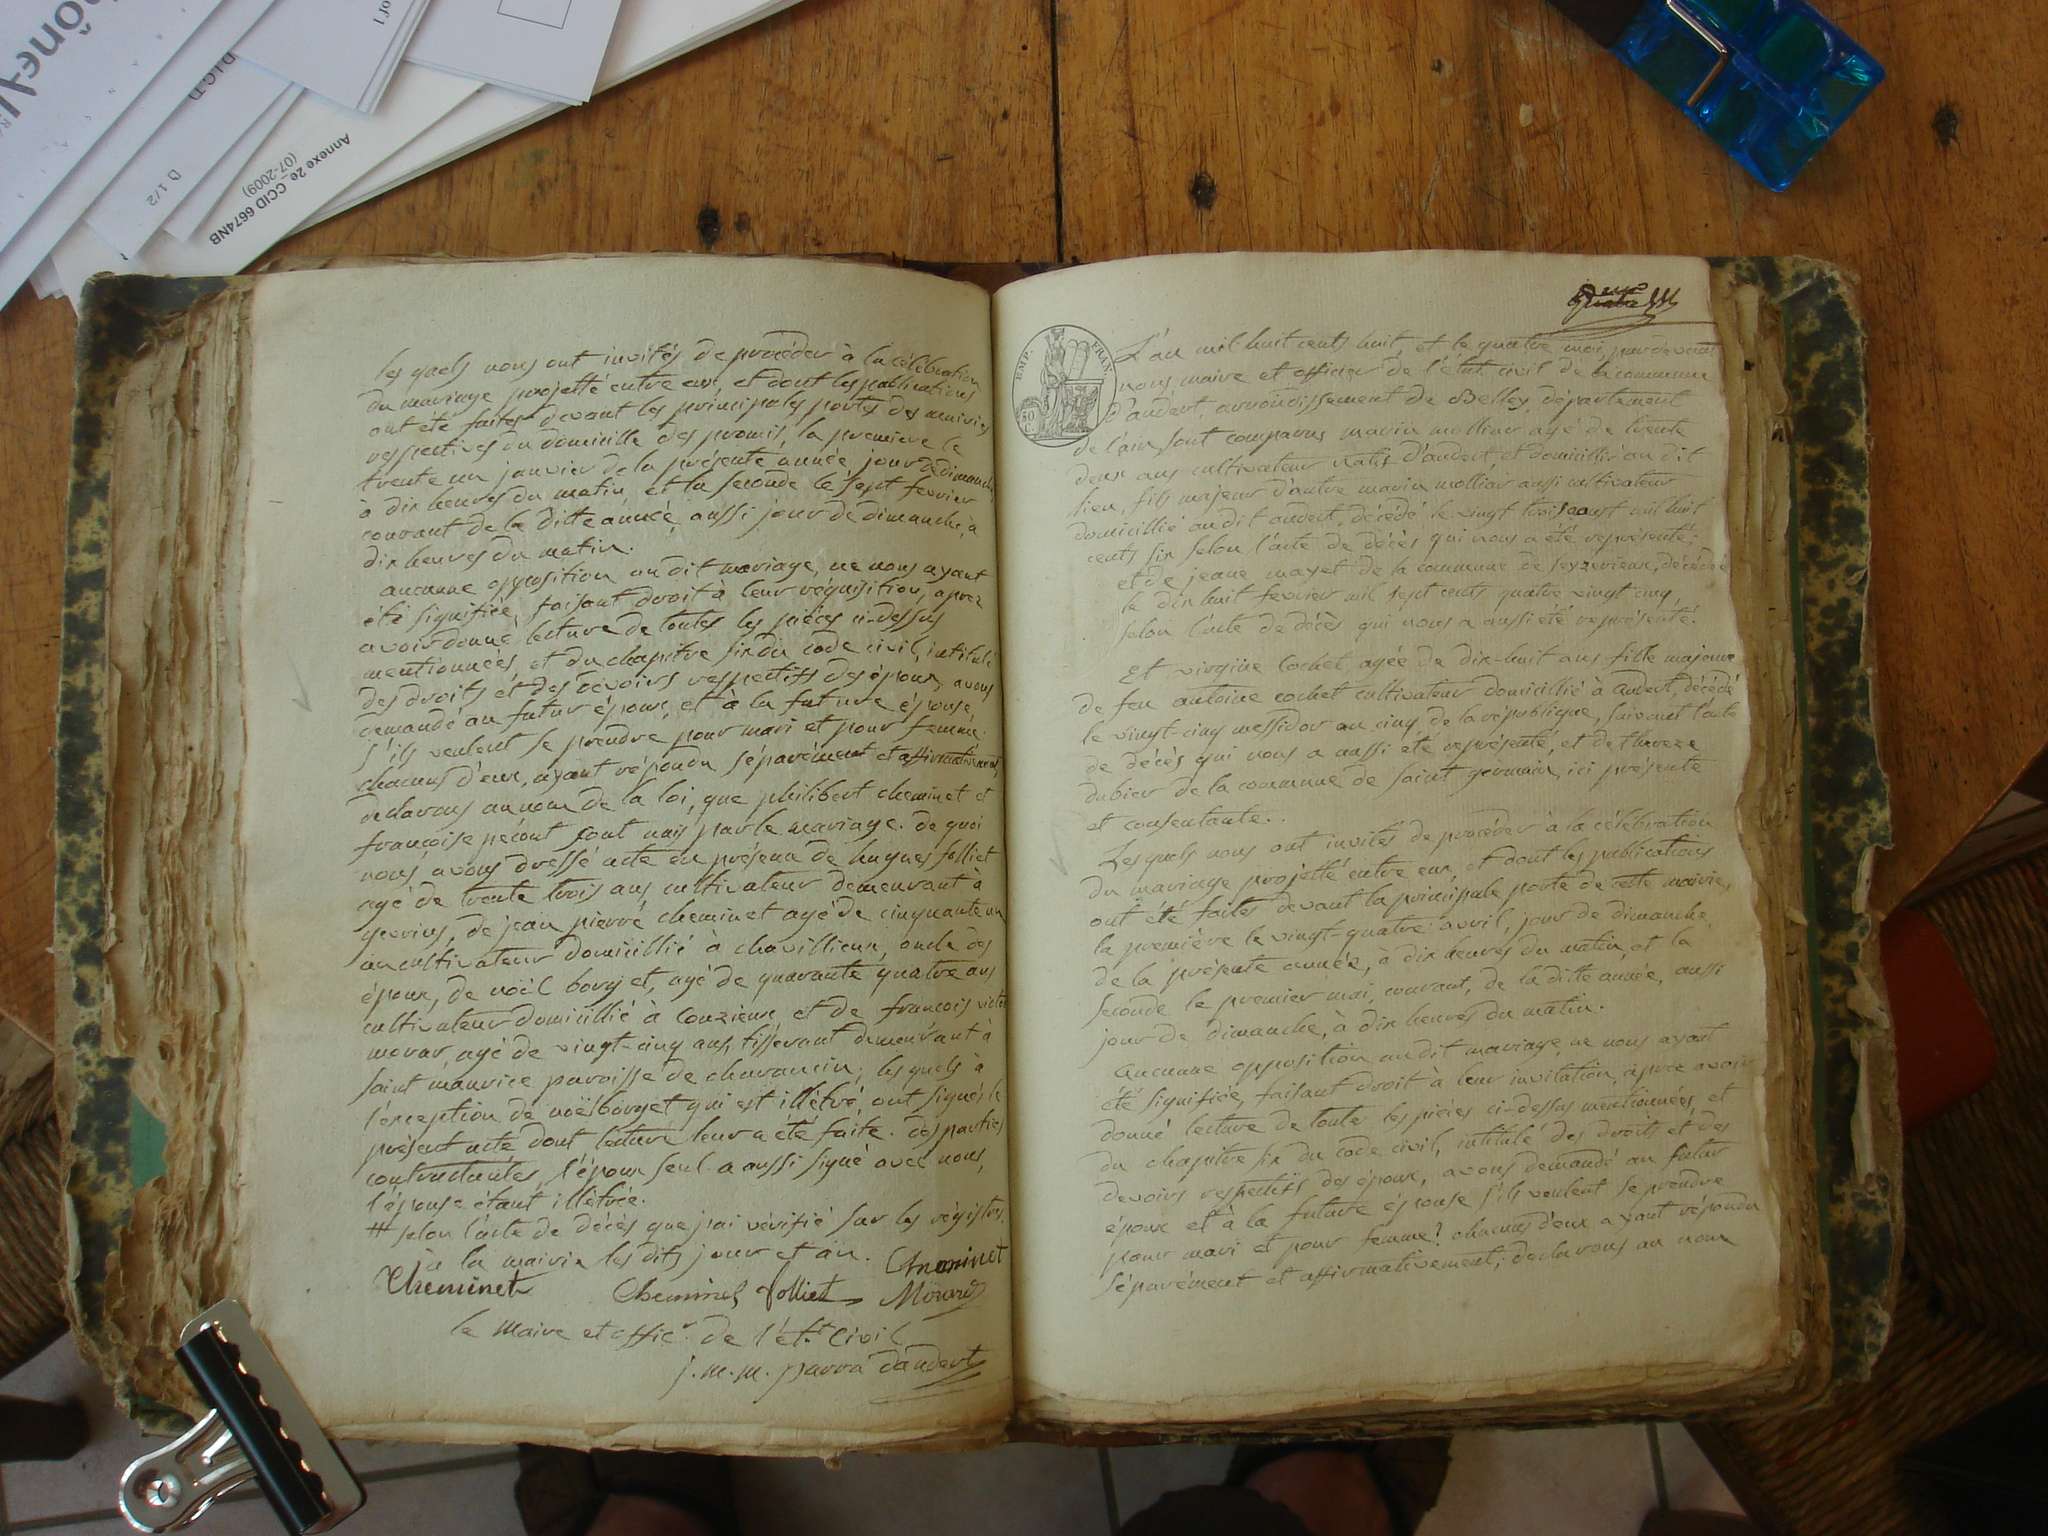 D.I.C.T)
of 1
D 1/2
Annexe 2e CCID 6674NB
(07-2009)
les quels nous ont invités de procéder à la célébration
du mariage projetté entre eux, et dont les publications
ont été faites devant les principales portes des mairies
respectives du domicille des promis, la première le
trente un janvier de la présente année jour de dimanche
à dix heures du matin, et la seconde le sept fevrier
courant de la ditte année, aussi jour de dimanche, à
dix heures du matin.
aucunne opposition au dit mariage, ne nous ayant
été signifiée, faisant droit à leur réquisition, aprez
avoir donné lecture de toutes les pièces ci-dessus
mentionnées, et du chapitre six du code civil, intitulé
des droits et des devoirs respectifs des époux, avons
demandé au futur époux, et à la future épouse
s'ils veulent se prendre pour mari et pour femme.
chacuns d'eux, ayant répondu séparément et affirmativement,
déclarons au nom de la loi, que philibert cheminet et
françoise pécout sont unis par le mariage. de quoi
nous avons dressé acte en présence de hugues folliet
agé de trente trois ans, cultivateur demeurant à
de jean pierre cheminet agé de cinquante un
an cultivateur domicillié à chavillieux, oncle des
époux, de noël borget, agé de quarante quatre ans
cultivateur domicillié à Couzieux, et de françois victor
morar, agé de vingt-cinq ans, tisserant demeurant à
saint maurice paroisse de charancin; les quels à
l'exception de noël borget qui est illétré, ont signés le
présent acte dont lecture leur a été faite. des parties
contractantes, l'époux seul a aussi signé avec nous,
l'épouse étant illétrée.
# selon l'acte de décès que j'ai vérifié sur les régistres.
à la mairie les dits jour et an. Cheminet
Cheminet Cheminet folliet Morard
le Maire et offic.r de l'ét.t Civil
j. m. m. parra d'andert
EMP. FRAN.
50 C.
L'an mil huit cents huit, et le quatre mai, pardevant
nous maire et officier de l'état civil de la commune
d'andert, arrondissement de Belley, département
de l'ain, sont comparus marin molliar agé de trente
deux ans cultivateur natif d'andert, et domicillié au dit
lieu, fils majeur d'autre marin molliar aussi cultivateur
domicillié au dit andert, décédé le vingt trois aoust mil huit
cents six selon l'acte de décès qui nous a été représenté;
et de jeane mayet de la commune de seyzerieux, décédée
le dix huit fevrier mil sept cents quatre vingt cinq,
selon l'acte de décès qui nous a aussi été représenté.
Et virgine Cochet, agée de dix-huit ans fille majeure
de feu antoine cochet cultivateur domicillié à Andert, décédé
le vingt-cinq messidor an cinq de la république, suivant l'acte
de décès qui nous a aussi été représenté, et de thereze
dubier de la commune de saint germain, ici présente
et consentante.
Les quels nous ont invités de procéder à la célébration
du mariage projetté entre eux, et dont les publications
ont été faites devant la principale porte de cette mairie,
la première le vingt-quatre avril, jour de dimanche
de la présente année, à dix heures du matin, et la
seconde le premier mai, courant, de la ditte année, aussi
jour de dimanche, à dix heures du matin.
Aucunne opposition au dit mariage, ne nous ayant
été signifiée, faisant droit à leur invitation, après avoir
donné lecture de toutes les pièces ci-dessus mentionnées, et
du chapitre six du code civil, intitulé des droits et des
devoirs respectifs des époux, avons demandé au futur
époux et à la future épouse s'ils veulent se prendre
pour mari et pour femme? chacuns d'eux ayant répondu
séparément et affirmativement; déclarons au nom